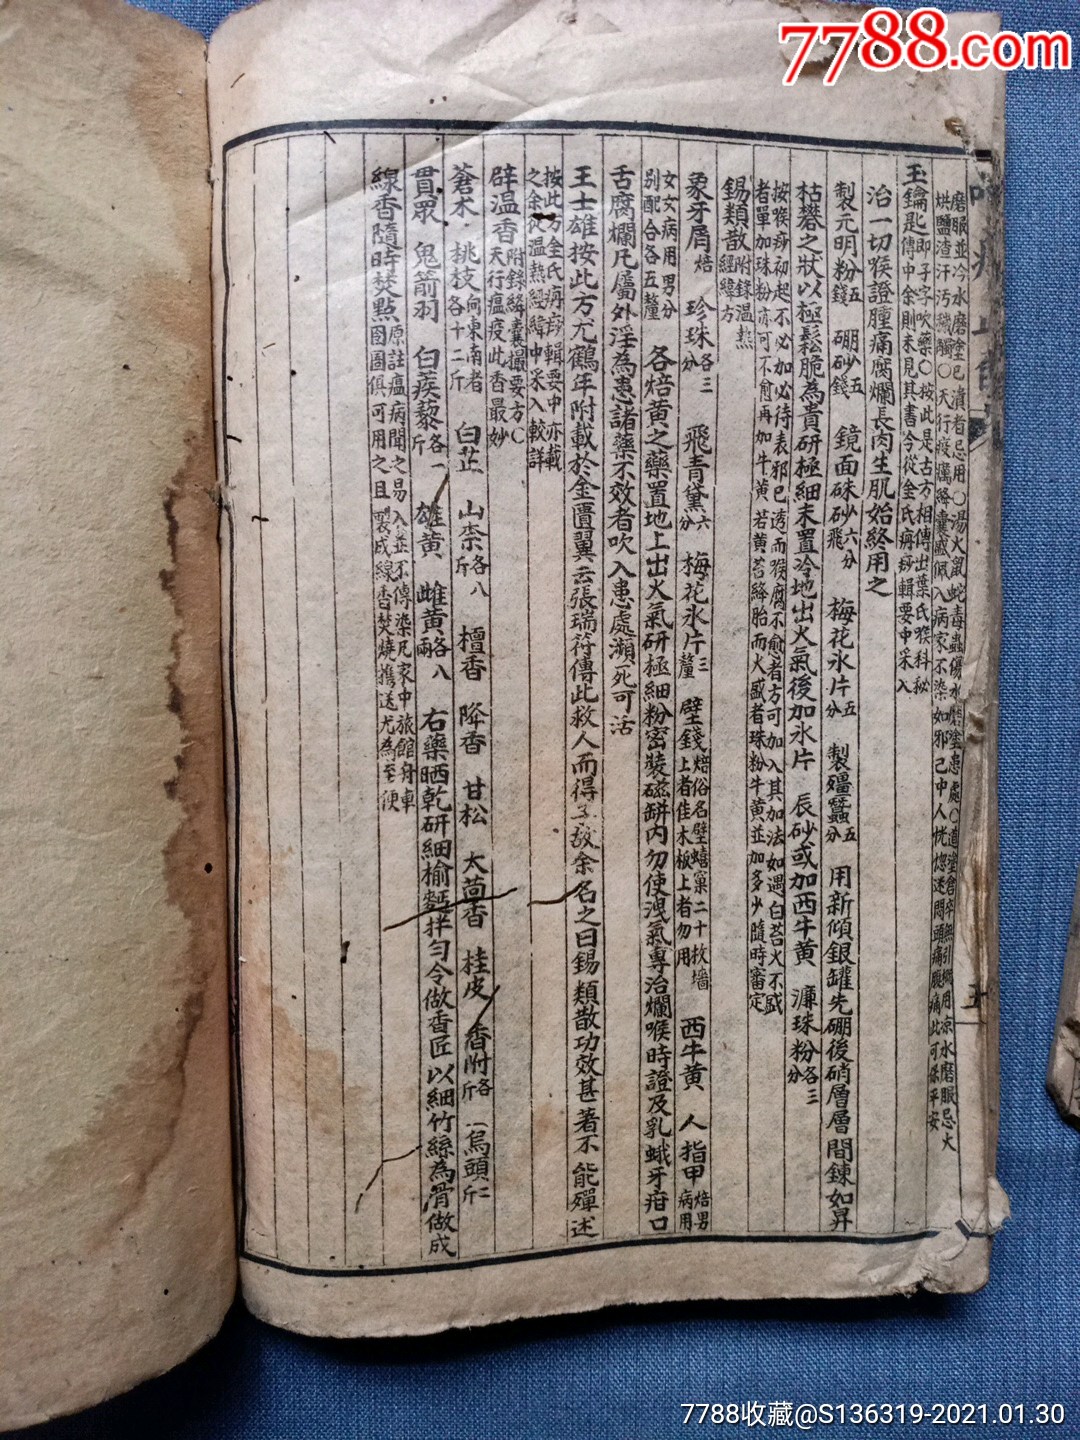 7788.com
磨服並冷水磨塗已潰者忌用○湯火鼠蛇毒蟲傷水磨塗患處○
烘鹽渣汗汚穢觸○天行疫癘絳囊盛佩入病家不染如邪已中人恍惚迷悶頭痛眼痛此可保平安
玉鑰匙即子字吹藥○按此是古方相傳出葉氏喉科秘
傳中余則未見其書今從金氏痧疹輯要中采入
治一切喉證腫痛腐爛長肉生肌始終用之
製元明粉五錢 硼砂五錢 鏡面硃砂六分飛 梅花氷片五分 製殭蠶五分 用新傾銀罐先硼後硝層層間鍊如昇
枯礬之狀以極鬆脆為貴研極細末置冷地出火氣後加氷片 辰砂或加西牛黃 濂珠粉各三分
按喉痧初起不必加必待表邪已透而喉腐不愈者方可加入其加法如遇白苔火不盛
者單加珠粉亦可不愈再加牛黃 若黃苔絳胎而火盛者珠粉牛黃並加多少隨時審定
錫類散附錄溫熱經緯方
象牙屑焙 珍珠各三分 飛青黛六分 梅花氷片三釐 壁錢焙俗名壁蟢窠二十枚墻上者佳木板上者勿用 西牛黃 人指甲焙男病用
女女病用男分別配合各五釐 各焙黃之藥置地上出火氣研極細粉密裝磁缾內勿使洩氣專治爛喉時證及乳蛾牙疳口
舌腐爛凡屬外淫為患諸藥不效者吹入患處瀕死可活
王士雄按此方尤鶴年附載於金匱翼云張瑞符傳此救人而得子故余名之曰錫類散功效甚著不能殫述
按此方金氏痧疹輯要中亦載
之余從溫熱經緯中采入較詳
辟溫香附錄絳囊撮要方○天行瘟疫此香最妙
蒼朮 桃枝向東南者各十二斤 白芷 山柰各八斤 檀香 降香 甘松 大茴香 桂皮 香附各一斤 烏頭二斤
貫眾 鬼箭羽 白蒺藜各一斤 雄黃 雌黃各八兩 右藥晒乾研細榆麵拌勻令做香匠以細竹絲為骨做成
線香隨時焚點原註瘟病聞之易入並不傳染凡家中旅館舟車囹圄俱可用之且製成線香焚燒攜送尤為至便
五
7788收藏@S136319-2021.01.30